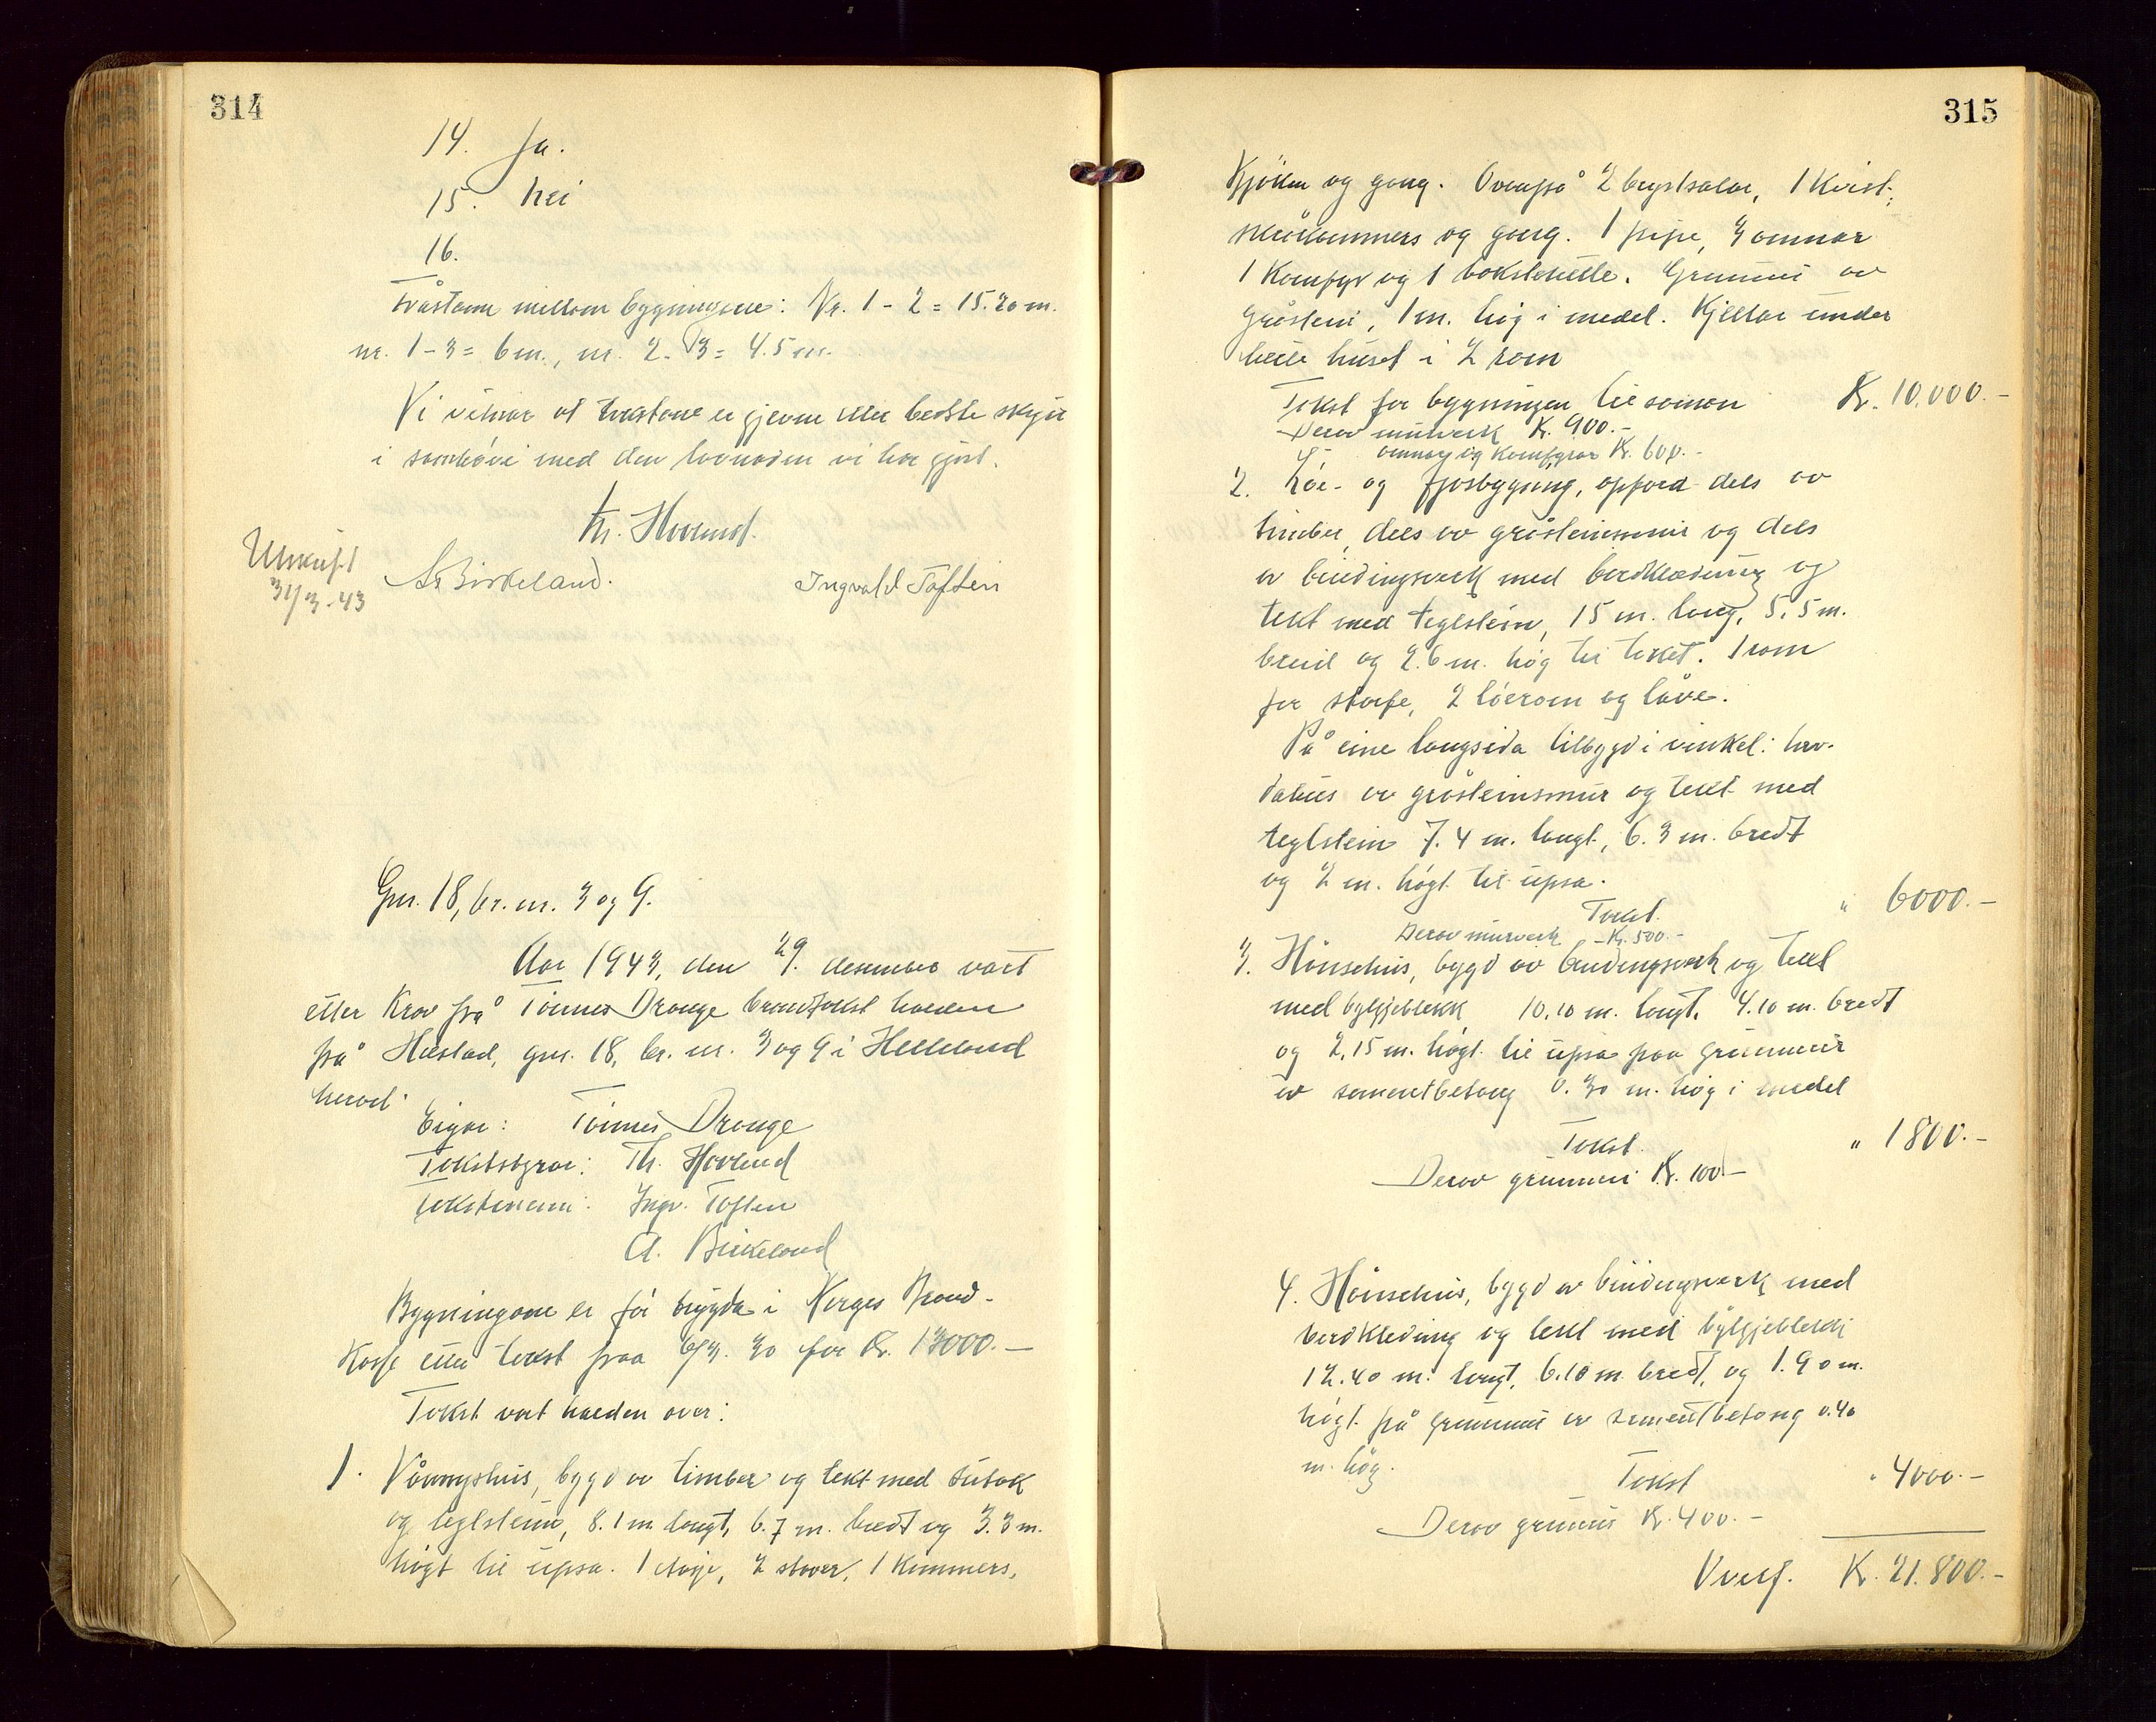 314
14. Ja.
15. Nei
16.
Fråstann millom bygningane: Nr. 1 - 2 = 15.20 m.
nr. 1 - 3 = 6 m., nr. 2 - 3 = 4.5 m.
Vi vitnar at takstane er gjevne etter beste skjyn
i samhøve med den lovnaden vi har gjort.
Th. Hovland.
Utskrift
31/3-43
A. Birkeland.
Ingvald Toften
Gnr. 18, br. nr. 3 og 9.
Aar 1943, den 29. desember vart
etter krav frå Tønnes Drange brandtakst halden
på Hæstad, gnr. 18, br. nr. 3 og 9 i Helleland
herad.
Eigar: Tønnes Drange
Takststyrar: Th. Hovland
Takstmenn: Ingv. Toften
A. Birkeland
Bygningane er før trygda i Norges Brand-
kasse etter takst fraa 6/3. 30 for Kr. 13000.-
Takst vart halden over:
1. Våningshus, bygd av timber og tekt med sutak
og teglstein, 8.1 m. langt, 6.7 m. bredt og 3.3 m.
høgt til upsa. 1 høgd, 2 stover, 1 kammers,
315
Kjøken og gang. Ovenpå 2 brystsalar, 1 kvist,
skråkammers og gang. 1 pipe, 3 omnar
1 komfyr og 1 bakstehelle. Grunnmur av
gråstein, 1 m. høg i medel. Kjellar under
heile huset i 2 rom
Takst for bygningen til saman Kr. 10.000.-
Derav murverk Kr. 900.-
"- omnar og komfyrar Kr. 600.-
2. Løe- og fjosbygning, oppførd dels av
timber, dels av gråsteinsmur og dels
av bindingsverk med bordklædning og
tekt med teglstein, 15 m. lang, 5.5 m.
breid og 2.6 m. høg til taket. 1 rom
for storfe, 2 løerom og låve.
På eine langsida tilbygd i vinkel:
av gråsteinsmur og tekt med
teglstein 7.4 m. langt, 6.3 m. bredt
og 2 m. høgt til upsa.
Takst. " 6000.-
Derav murverk - Kr. 500.-
3. Hønsehus, bygd av bindingsverk og tekt
med bylgjeblekk 10.10 m. langt, 4.10 m. bredt
og 2,15 m. høgt til upsa paa grunnmur
av sementbetong 0.30 m. høg i medel
Takst. " 1800.-
Derav grunnmur Kr. 100.-
4. Hønsehus, bygd av bindingsverk med
bordkledning og tekt med bylgjeblekk
12.40 m. langt, 6.10 m. bredt, og 1.90 m.
høgt på grunnmur av sementbetong 0.40
m. høg.
Takst " 4000.-
Derav grunnmur Kr. 400.-
Overf. Kr. 21.800.-